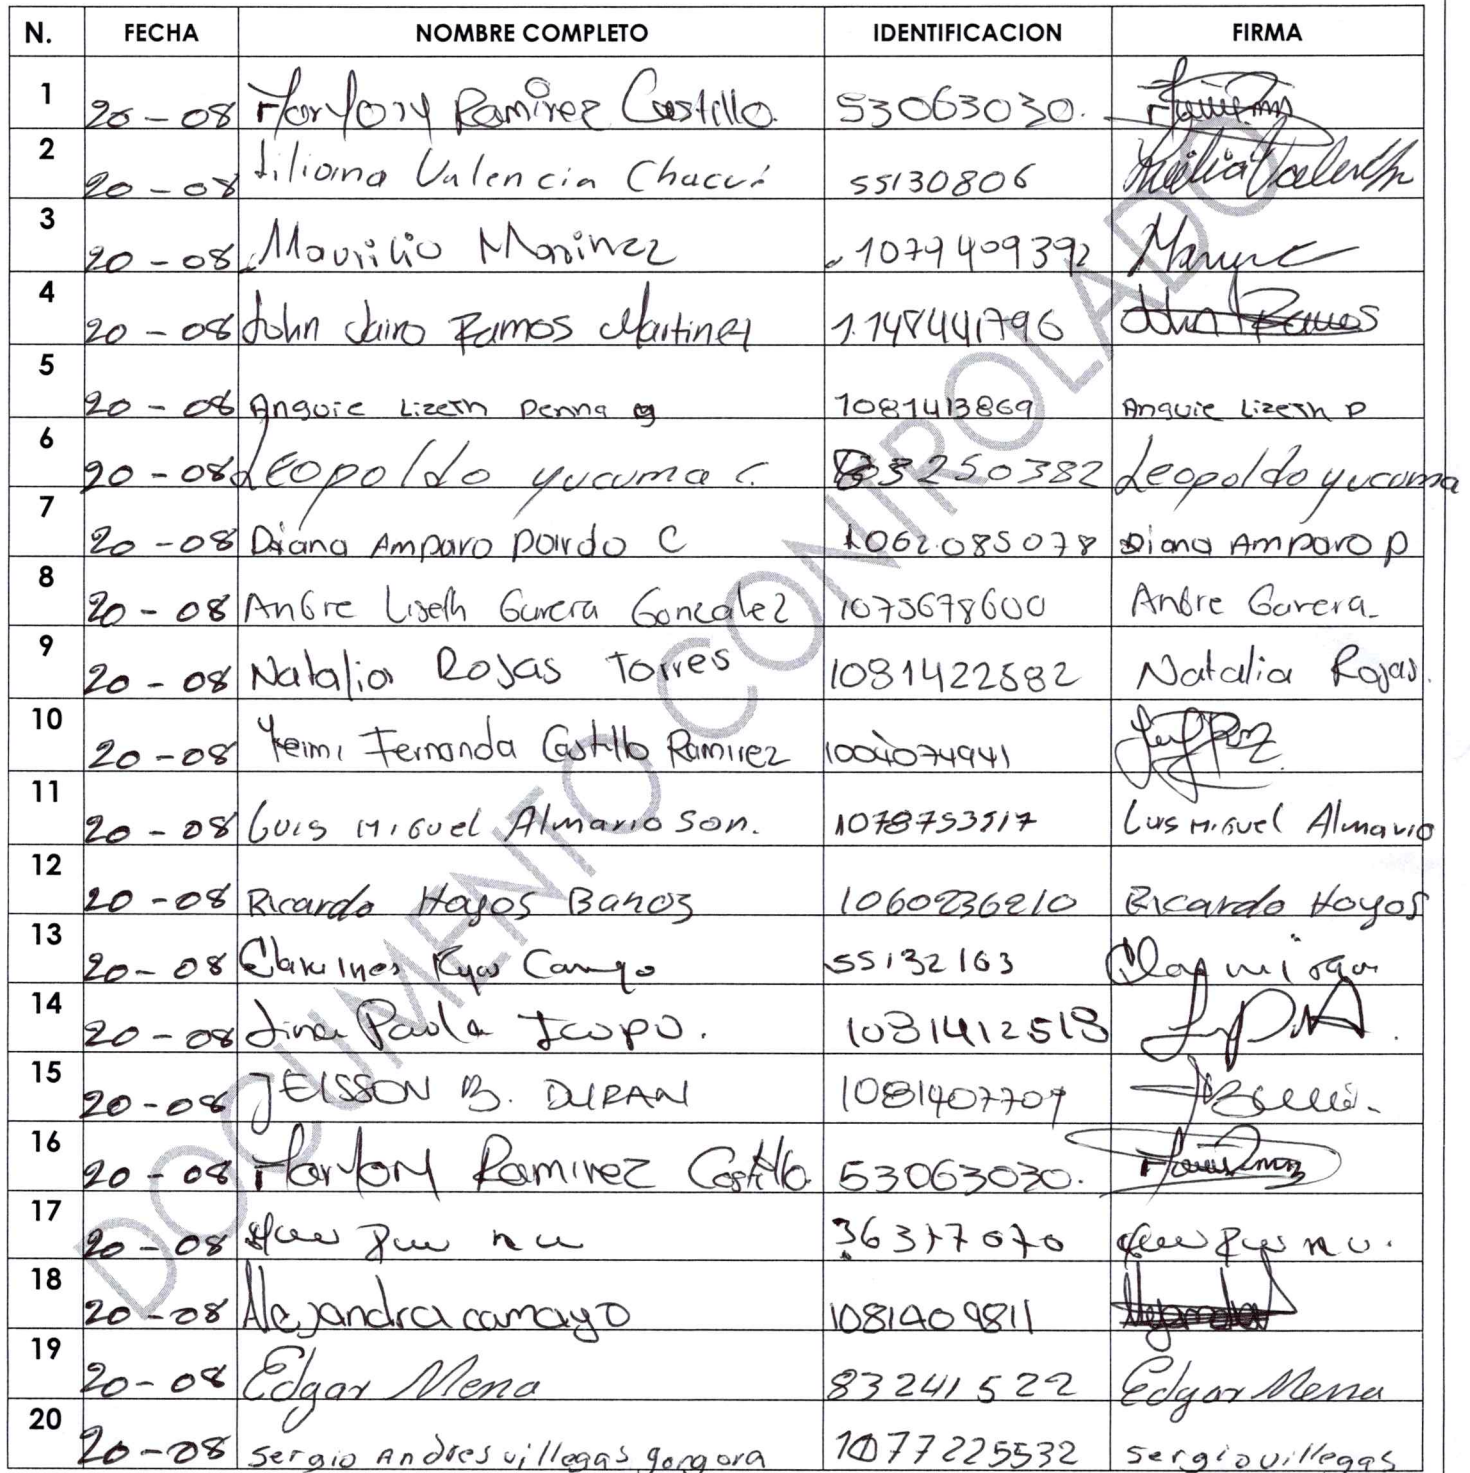 N. FECHA NOMBRE COMPLETO IDENTIFICACION FIRMA
1 20-08 Maryory Ramirez Castillo. 53063030.
2 20-08 Liliana Valencia Chacón 55130806
3 20-08 Maurilio 1079409392
4 20-08 John Jairo Ramos Martinez 1.148441796 John Ramos
5 20-08 Anguie Lizeth Penna g 1081413869 Anguie Lizeth P
6 20-08 Leopoldo yucuma C. 83250382 Leopoldo yucuma
7 20-08 Diana Amparo Pardo C 1062.085078 Diana Amparo P
8 20-08 Liseth Gonzalez 1075678600
9 20-08 Natalia Rojas Torres 1081422582 Natalia Rojas.
10 20-08 Yeimi Fernanda Castillo Ramirez 1004074941
11 20-08 Luis Miguel Almario Son. 1078753517 Luis Miguel Almario
12 20-08 Ricardo Hoyos Banoz 1060236210 Ricardo Hoyos
13 20-08 55132163
14 20-08 Lina Paola 1081412513
15 20-08 JEISSON B. DURAN 1081407709
16 20-08 Maryory Ramirez Castillo. 53063030.
17 20-08 36317070
18 20-08 Alejandra camayo 1081409811 Alejandra
19 20-08 Edgar Mena 83241522 Edgar Mena
20 20-08 Sergio Andres villegas gongora 1077225532 Sergio villegas
DOCUMENTO CONTROLADO